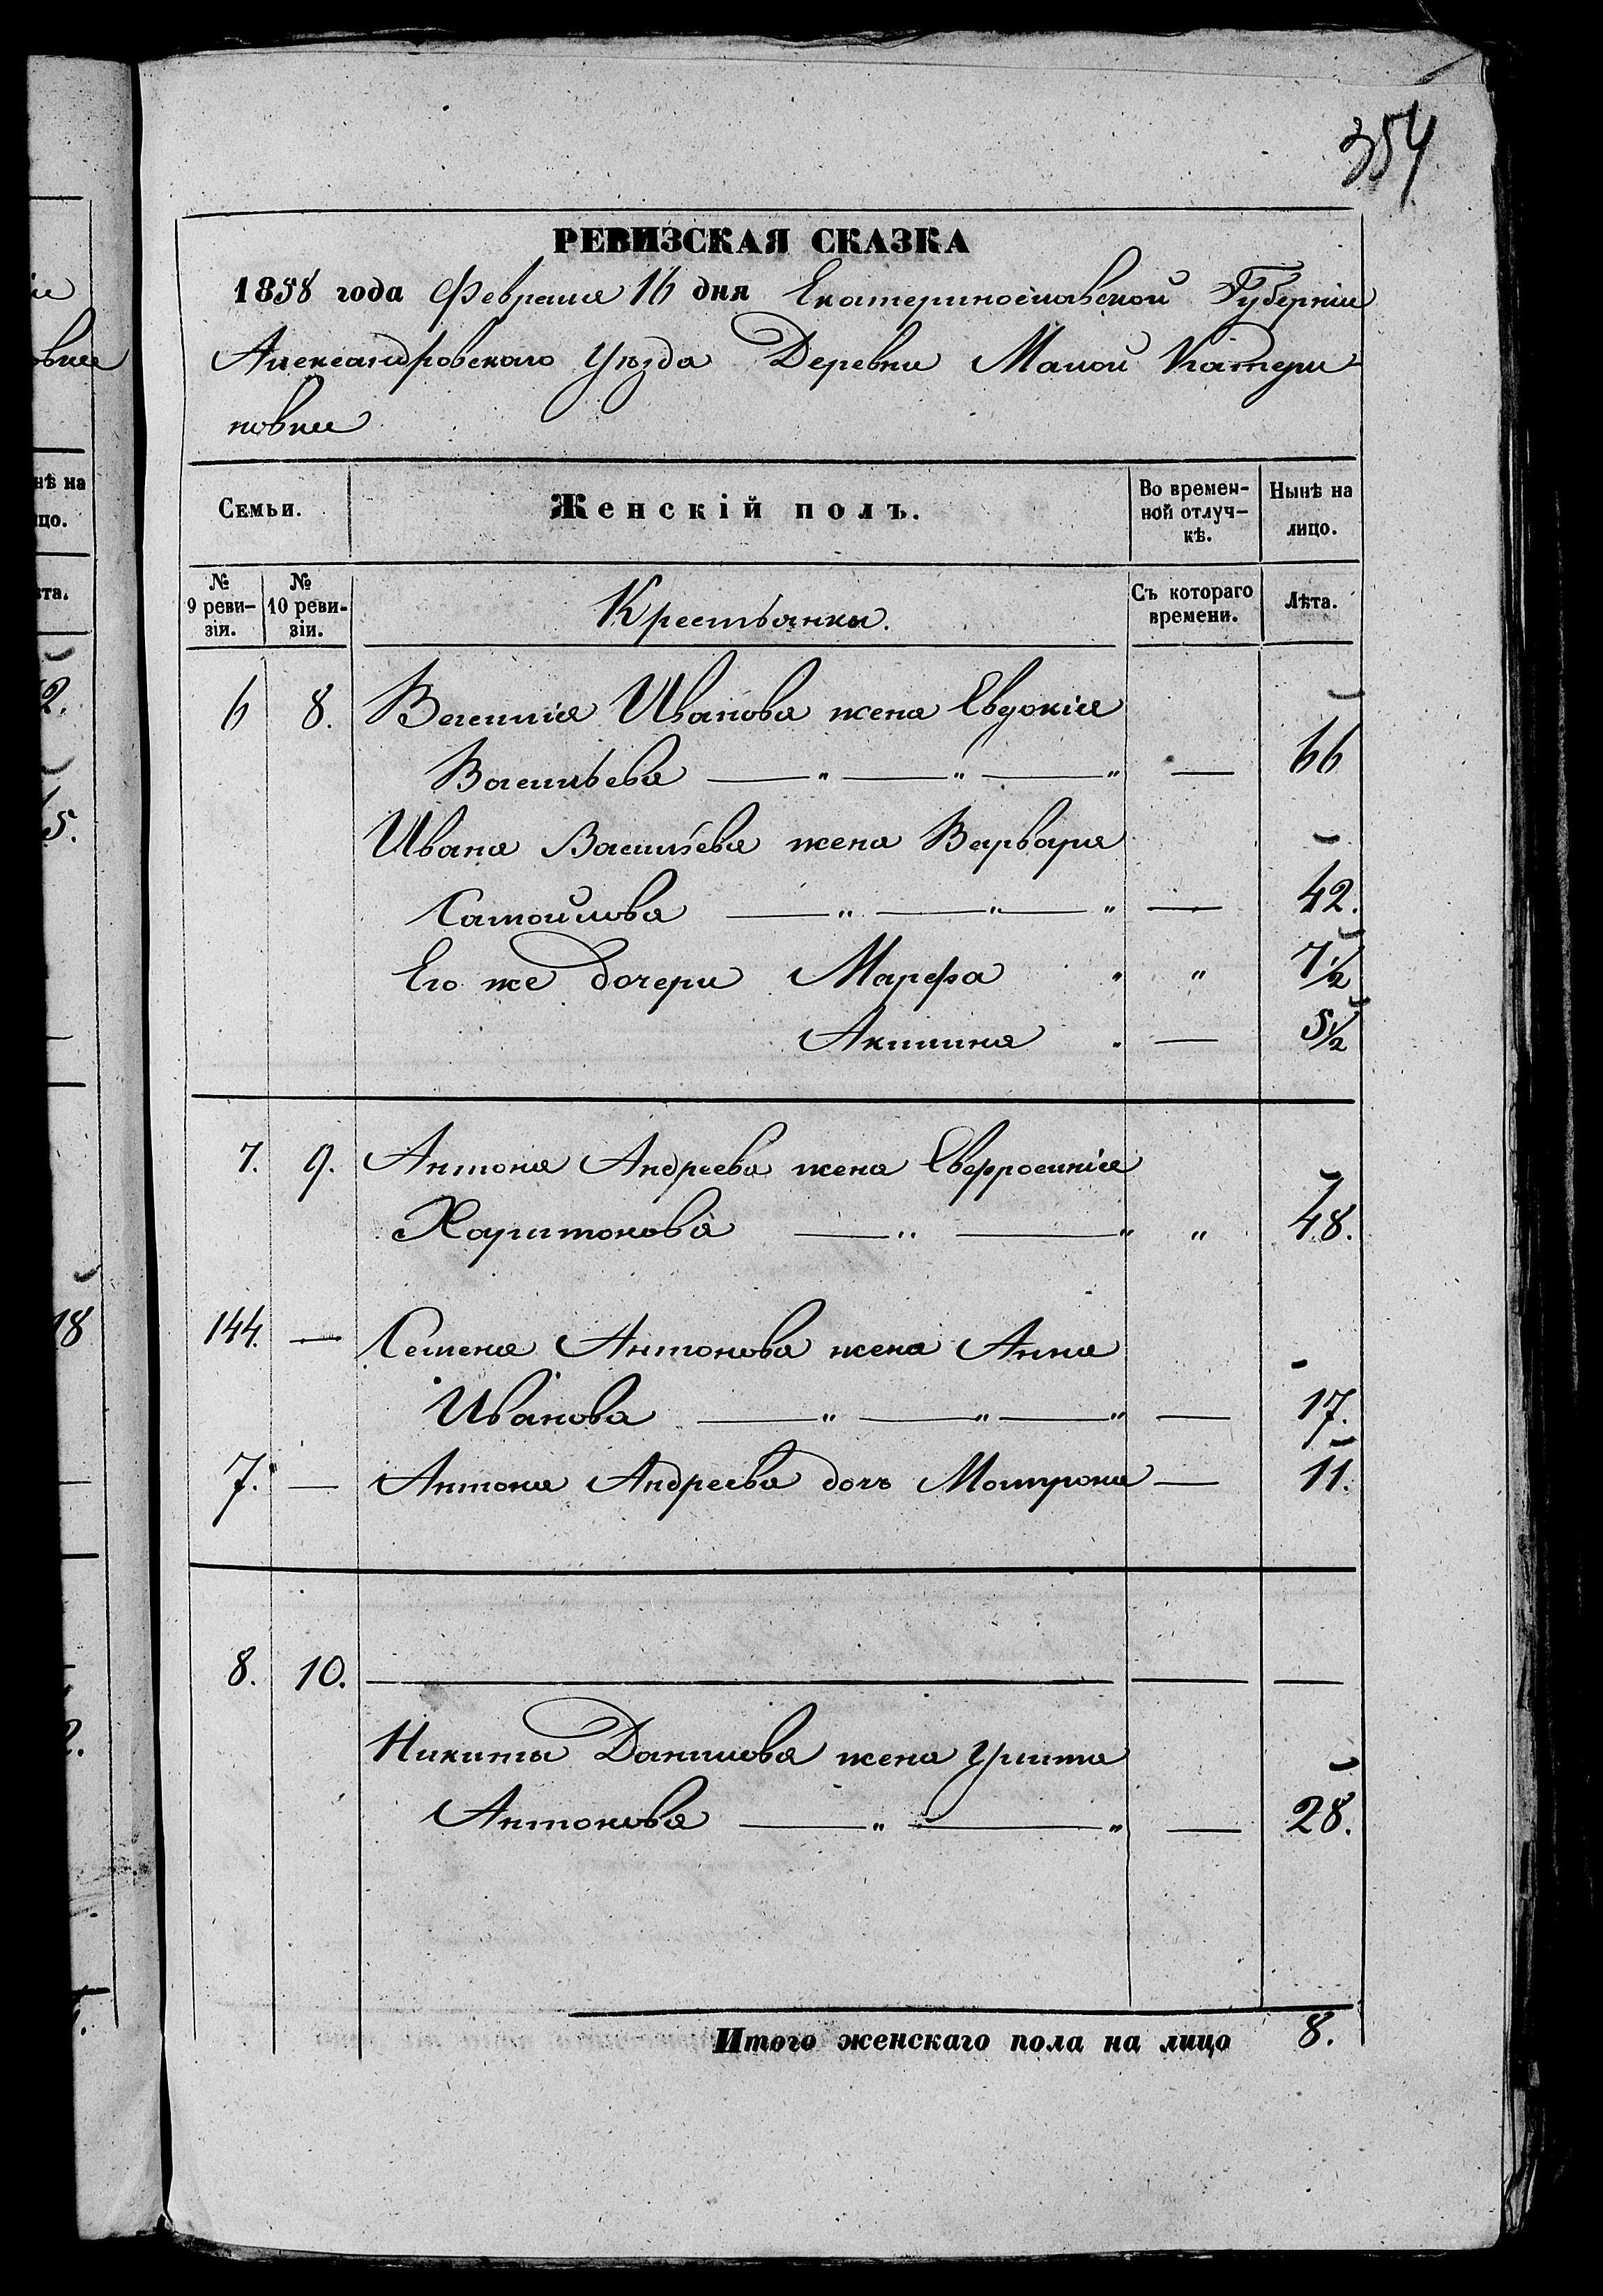 354
РЕВИЗСКАЯ СКАЗКА
1858 года Февраля 16 дня Екатеринославской Губерніи
Александровскаго Уѣзда Деревни Малой Катери-
новки
Семьи.
Женскій полъ.
Во времен-
ной отлуч-
кѣ.
Нынѣ на
лицо.
№
9 реви-
зіи.
№
10 реви-
зіи.
Крестьянки.
Съ котораго
времени.
Лѣта.
6 8. Василія Иванова жена Евдокія
Васильева — „ — „ — „ — 66
Ивана Васильева жена Варвара
Самойлова — „ — „ — „ — 42.
Его же дочери Марфа „ „ 7½
Акилина „ — 5½
7. 9. Антона Андреева жена Евфросинія
Харитонова — „ — „ „ 48.
144. — Семена Антонова жена Анна
Иванова — „ — „ — „ — 17.
7. — Антона Андреева дочь Мотрона — 11.
8. 10. — — —
Никиты Данилова жена Улита
Антонова — „ — „ — 28.
Итого женскаго пола на лицо 8.